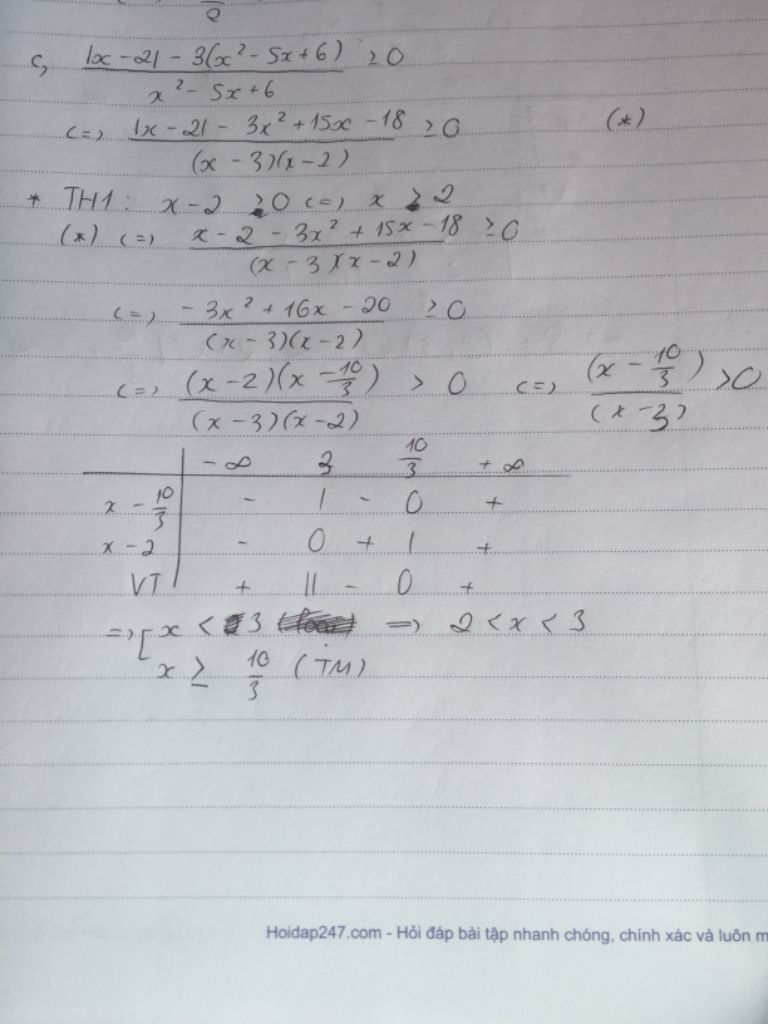 c, |x - 2| - 3(x² - 5x + 6) / x² - 5x + 6 ≥ 0
<=> |x - 2| - 3x² + 15x - 18 / (x - 3)(x - 2) ≥ 0 (*)
* TH1: x - 2 ≥ 0 <=> x ≥ 2
(*) <=> x - 2 - 3x² + 15x - 18 / (x - 3)(x - 2) ≥ 0
<=> - 3x² + 16x - 20 / (x - 3)(x - 2) ≥ 0
<=> (x - 2)(x - 10/3) / (x - 3)(x - 2) > 0 <=> (x - 10/3) / (x - 3) > 0
-∞ 3 10/3 +∞
x - 10/3 - | - 0 +
x - 2 - 0 + | +
VT + || - 0 +
=> [ x < 3 => 2 < x < 3
x ≥ 10/3 (TM)
Hoidap247.com - Hỏi đáp bài tập nhanh chóng, chính xác và luôn m